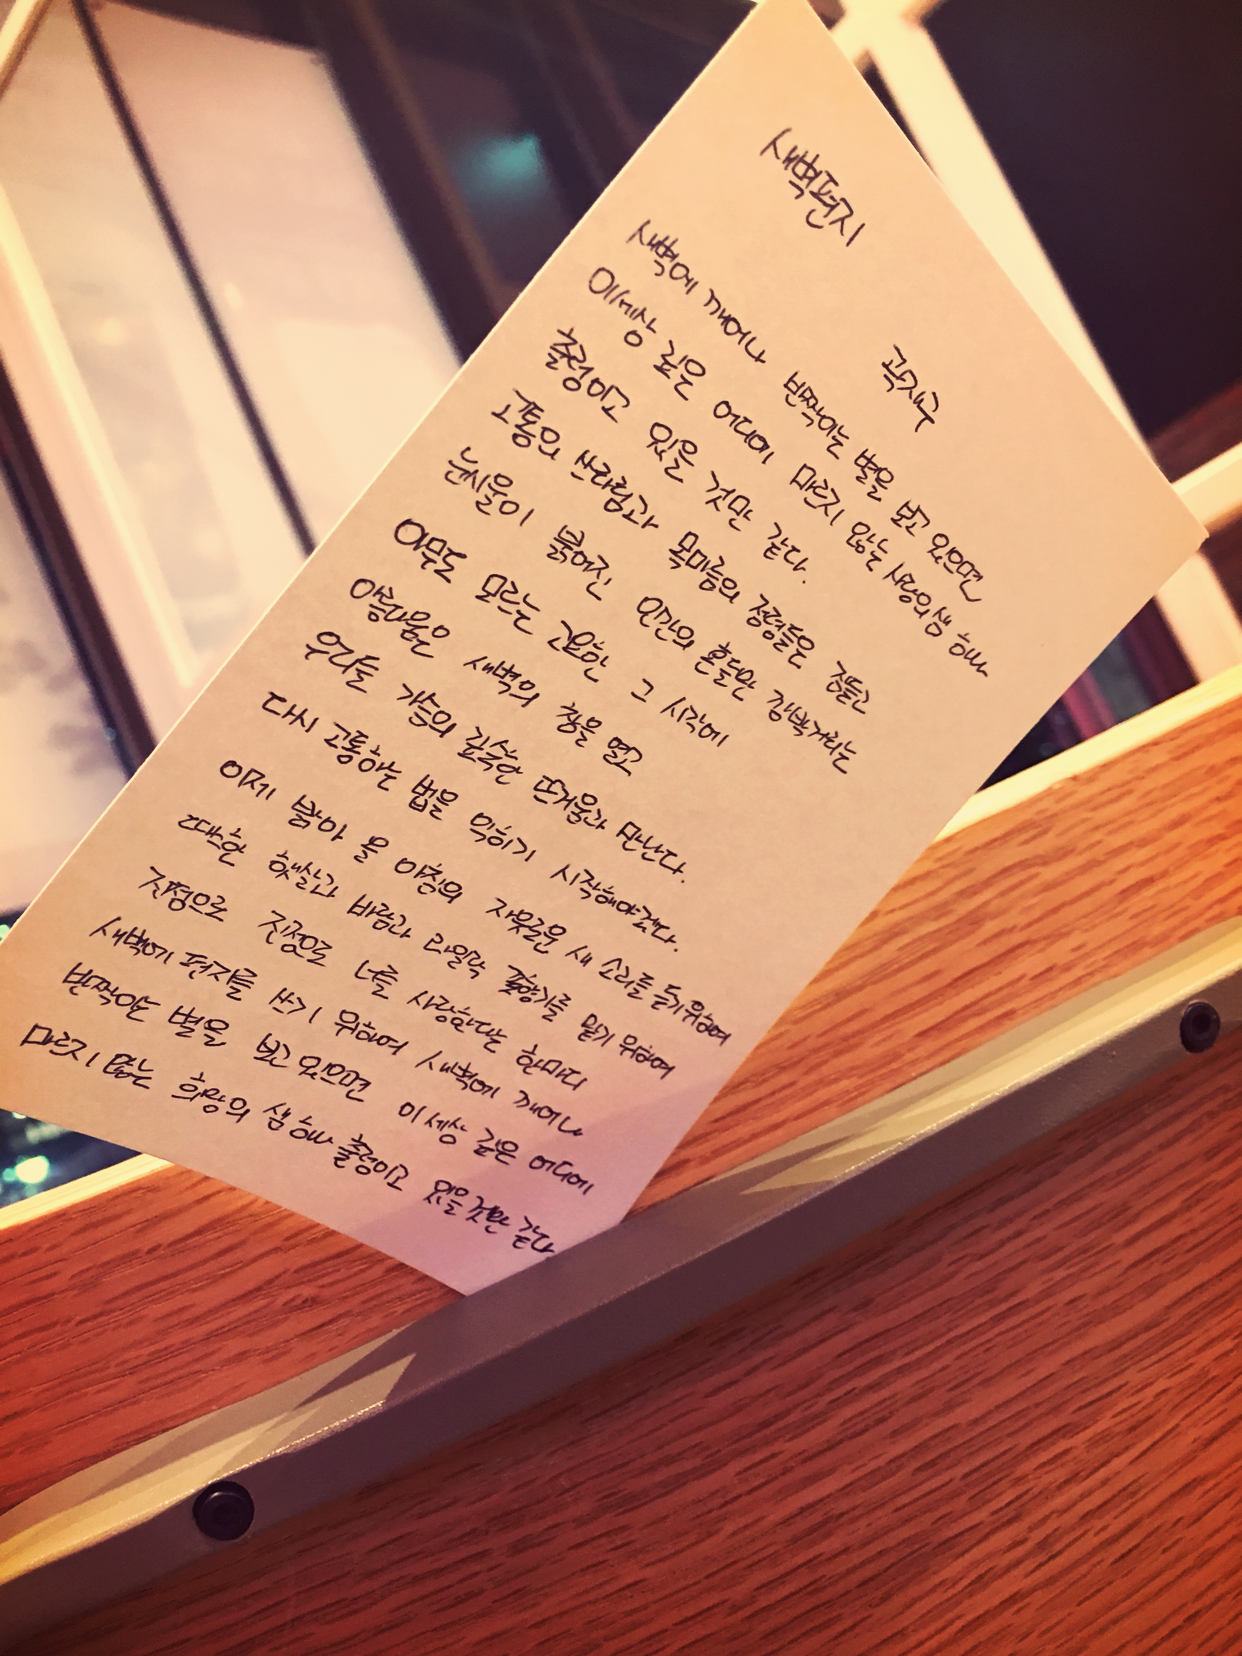 새벽편지
곽재구
새벽에 깨어나 반짝이는 별을 보고 있으면
이세상 깊은 어디에 마르지 않는 사랑의 샘 하나
출렁이고 있을 것만 같다.
고통의 쓰라림과 목마름의 정령들은 잠들고
눈시울이 붉어진 인간의 혼들만 깜박거리는
아무도 모르는 고요한 그 시각에
아름다움은 새벽의 창을 열고
우리들 가슴의 깊숙한 뜨거움과 만난다.
다시 고통하는 법을 익히기 시작해야겠다.
이제 밝아 올 아침의 자유로운 새 소리를 듣기위하여
따스한 햇살과 바람과 라일락 꽃향기를 맡기 위하여
진정으로 진정으로 너를 사랑한다는 한마디
새벽에 편지를 쓰기 위하여 새벽에 깨어나
반짝이는 별을 보고 있으면 이 세상 깊은 어디에
마르지 않는 희망의 샘 하나 출렁이고 있을 것만 같다